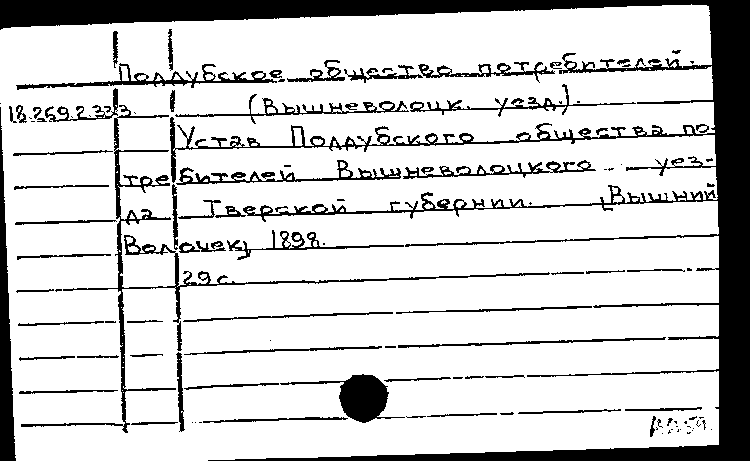 Поддубское общество потребителей.
18.269.2.333 (Вышневолоцк. уезд.).
Устав Поддубского общества по-
требителей Вышневолоцкого уез-
да Тверской губернии. [Вышний
Волочек], 1898.
29 с.